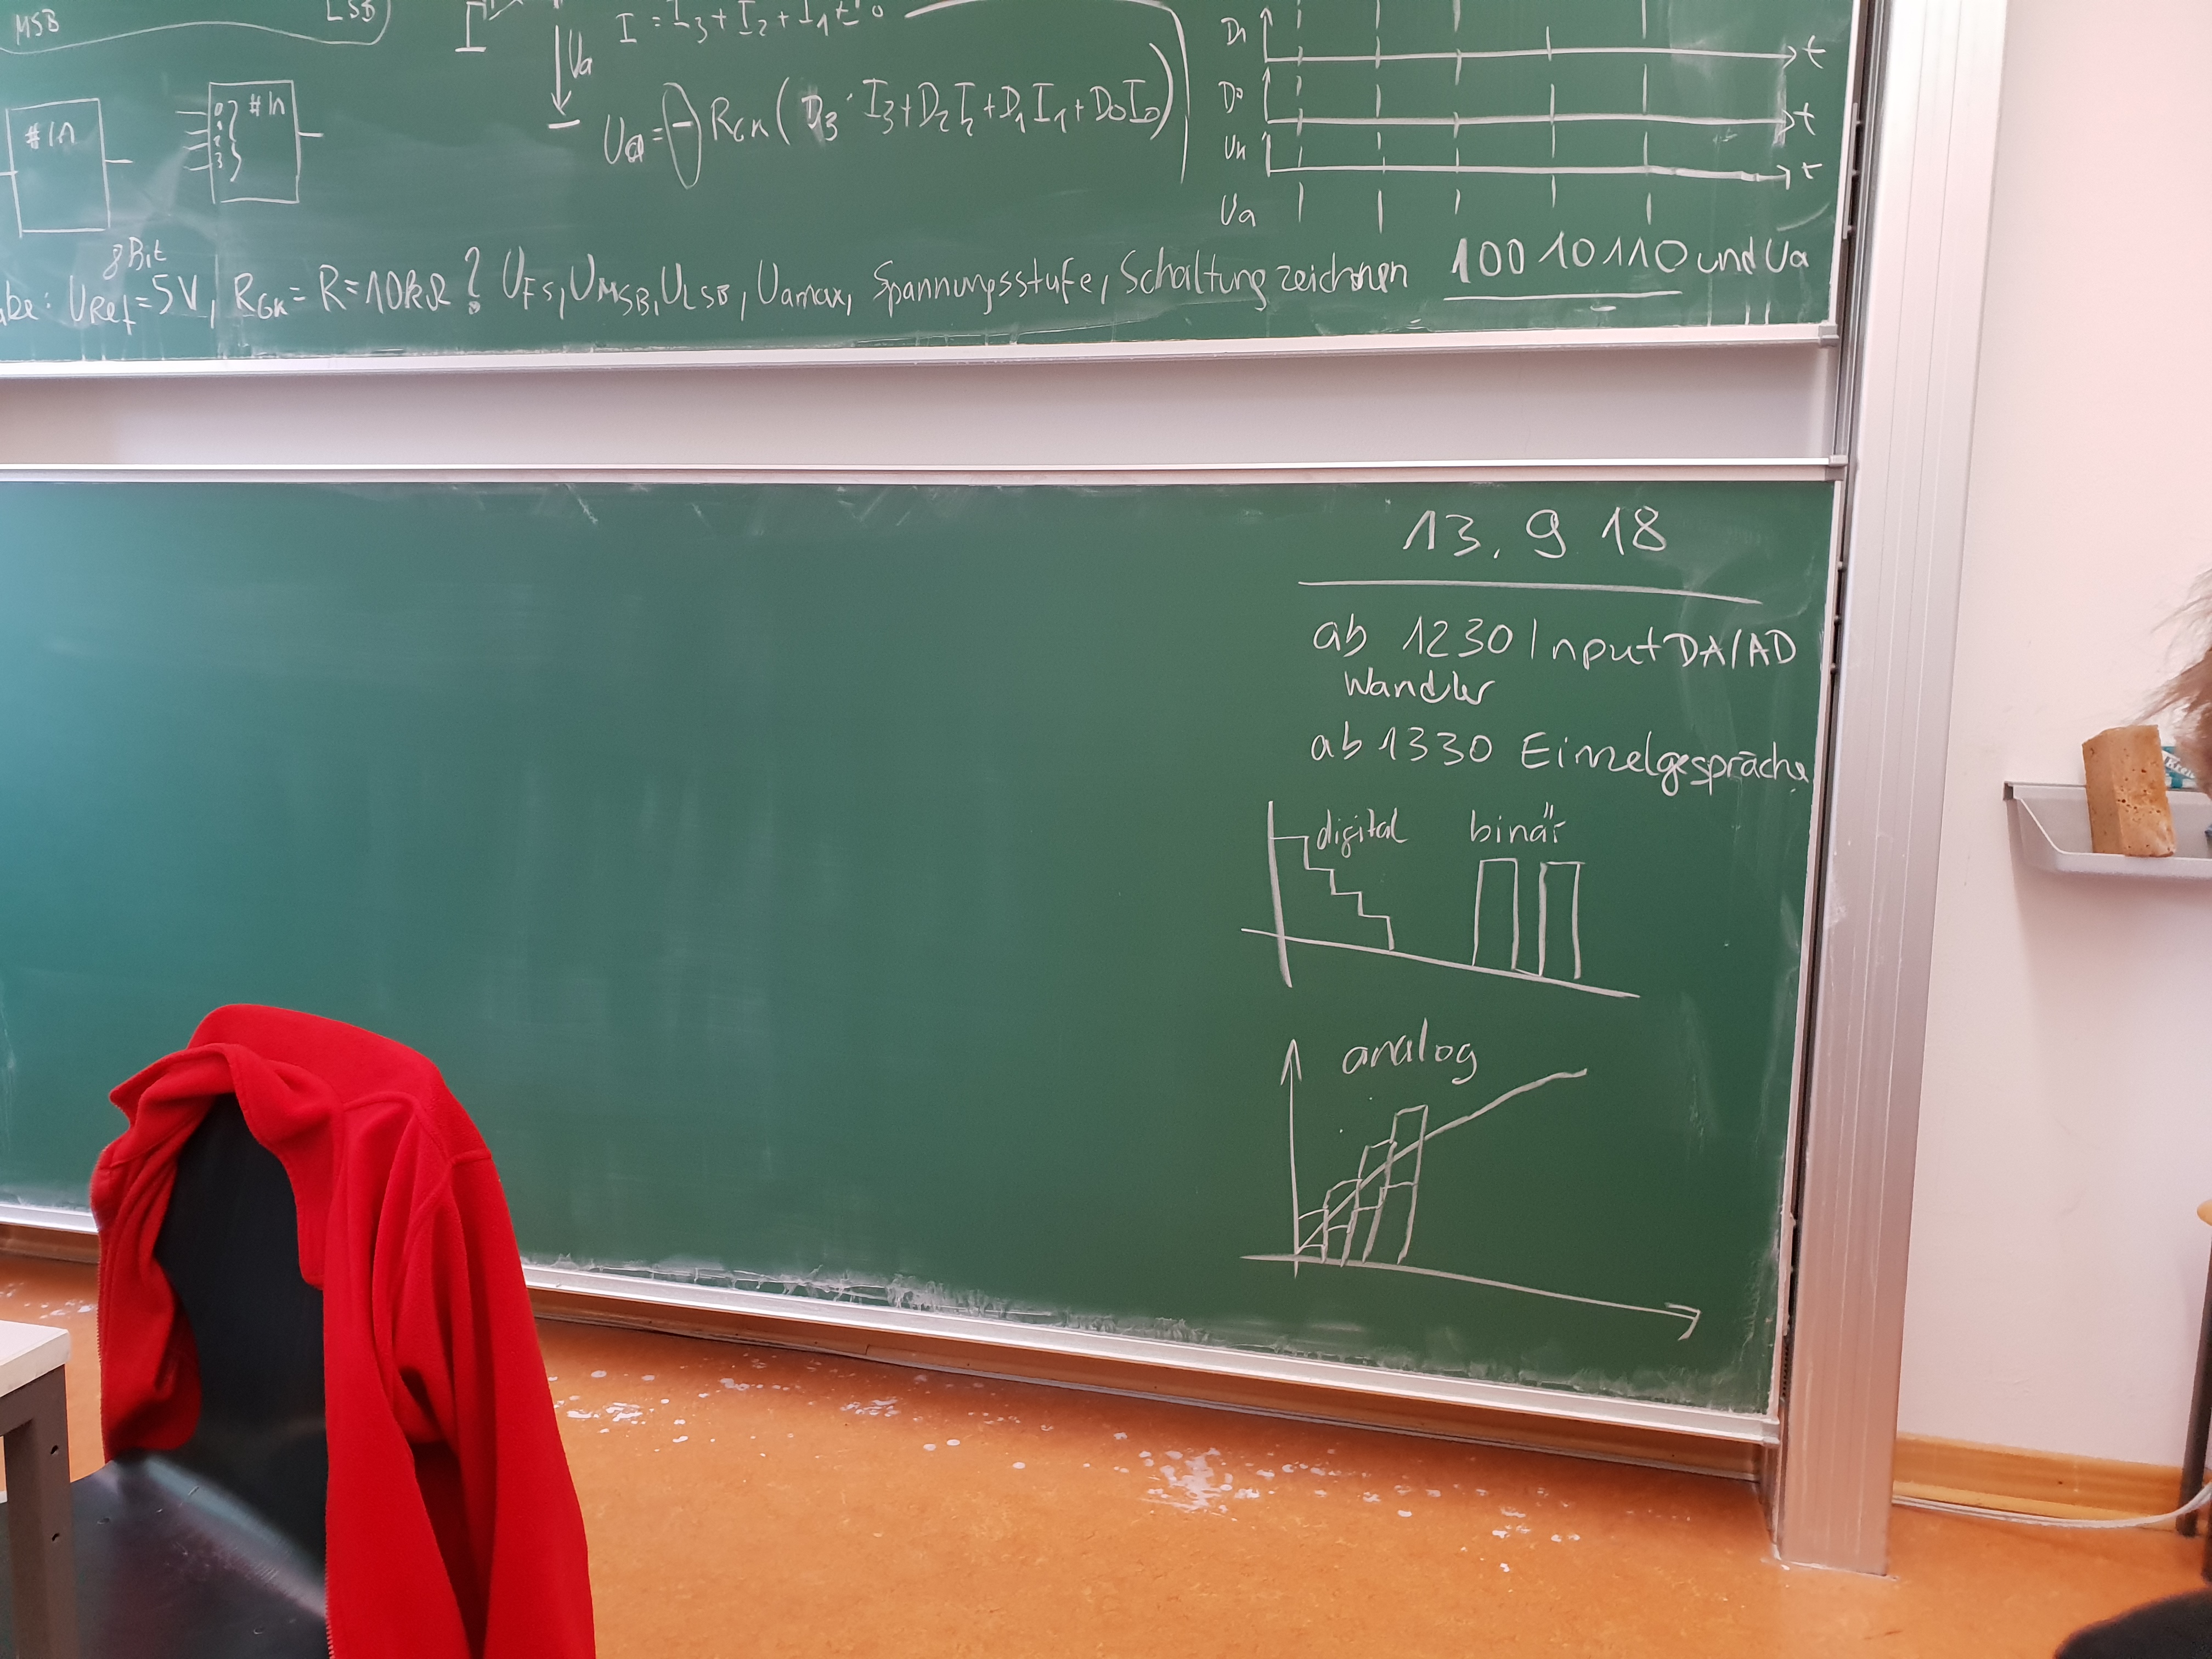 MSB LSB
I = I3 + I2 + I1 + I0
Ua
Ua = - RGK ( D3 · I3 + D2 I2 + D1 I1 + D0 I0 )
#/n
0
1
2
3
#/n
D1 t
D0 t
t
Ua
8Bit
abe: URef = 5V, RGK = R = 10kΩ ? UFS, UMSB, ULSB, Uamax, Spannungsstufe, Schaltung zeichnen 10010110 und Ua
13. 9 18
ab 1230 Input DA/AD
Wandler
ab 1330 Einzelgespräche
digital binär
analog